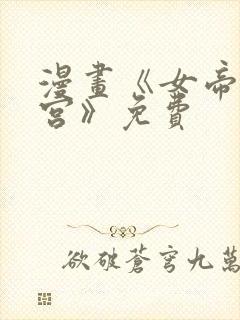 漫畫《女帝
宮》免費
欲破蒼穹九萬